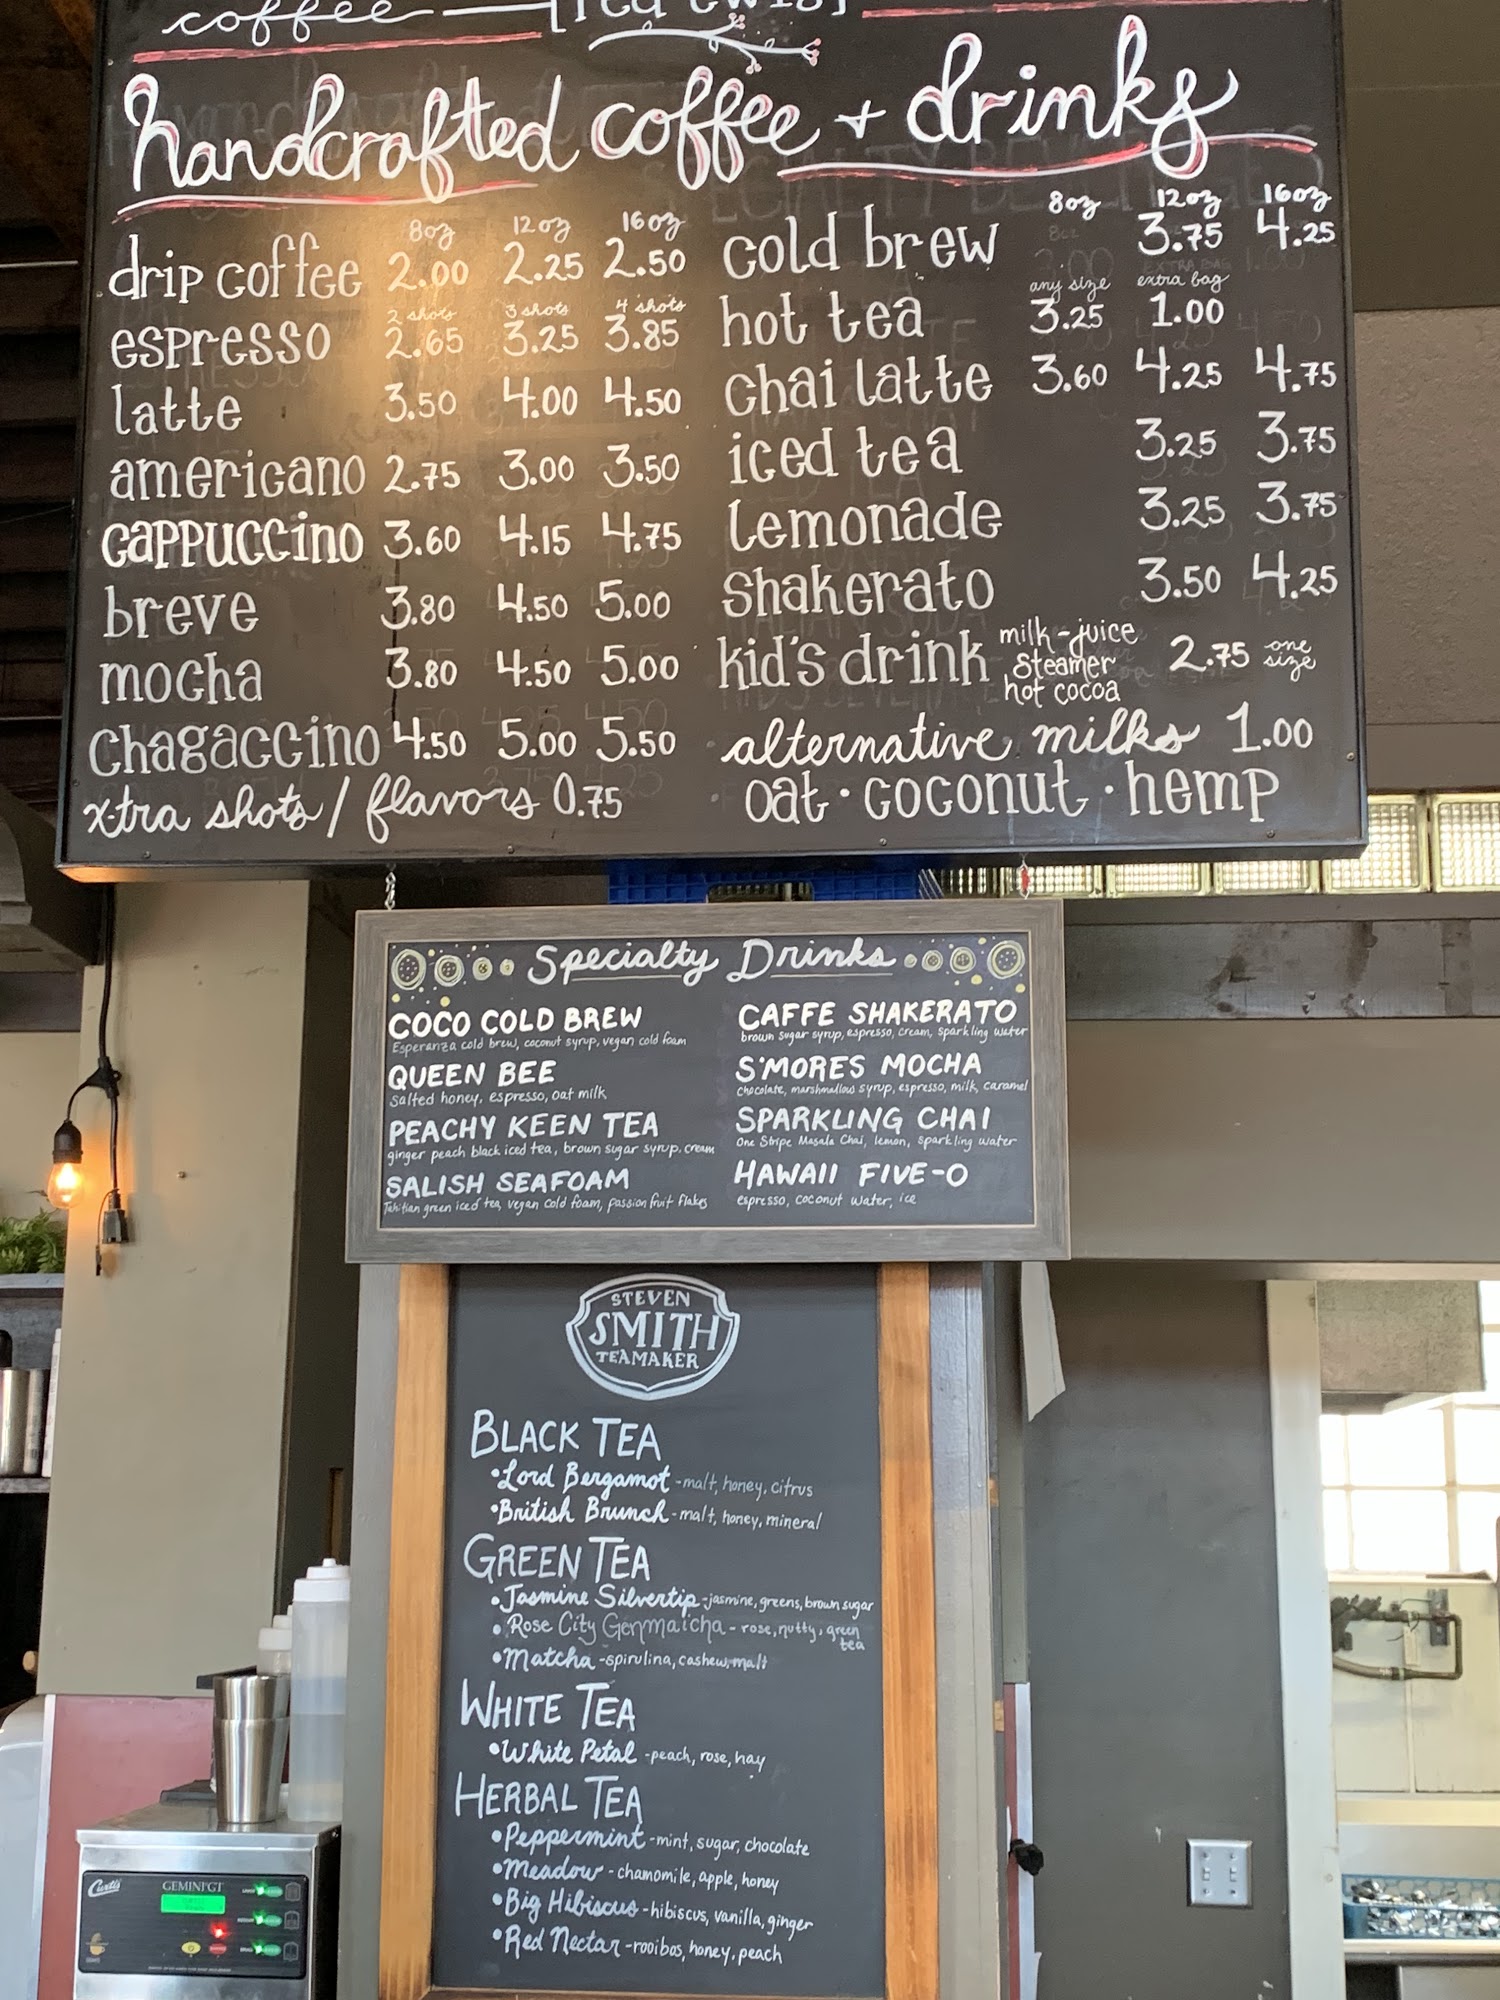 coffee [red twig]
handcrafted coffee + drinks
8oz 12oz 16oz
drip coffee 2.00 2.25 2.50
2 shots 3 shots 4 shots
espresso 2.65 3.25 3.85
latte 3.50 4.00 4.50
americano 2.75 3.00 3.50
cappuccino 3.60 4.15 4.75
breve 3.80 4.50 5.00
mocha 3.80 4.50 5.00
chagaccino 4.50 5.00 5.50
xtra shots / flavors 0.75
8oz 12oz 16oz
cold brew 3.75 4.25
any size extra bag
hot tea 3.25 1.00
chai latte 3.60 4.25 4.75
iced tea 3.25 3.75
lemonade 3.25 3.75
shakerato 3.50 4.25
kid's drink milk-juice steamer hot cocoa 2.75 one size
alternative milks 1.00
oat · coconut · hemp
Specialty Drinks
COCO COLD BREW
Esperanza cold brew, coconut syrup, vegan cold foam
QUEEN BEE
salted honey, espresso, oat milk
PEACHY KEEN TEA
ginger peach black iced tea, brown sugar syrup, cream
SALISH SEAFOAM
Tahitian green iced tea, vegan cold foam, passion fruit flakes
CAFFE SHAKERATO
brown sugar syrup, espresso, cream, sparkling water
S'MORES MOCHA
chocolate, marshmallow syrup, espresso, milk, caramel
SPARKLING CHAI
One Stripe Masala Chai, lemon, sparkling water
HAWAII FIVE-O
espresso, coconut water, ice
STEVEN
SMITH
TEAMAKER
BLACK TEA
• Lord Bergamot - malt, honey, citrus
• British Brunch - malt, honey, mineral
GREEN TEA
• Jasmine Silvertip - jasmine, greens, brown sugar
• Rose City Genmaicha - rose, nutty, green
tea
• Matcha - spirulina, cashew, malt
WHITE TEA
• White Petal - peach, rose, hay
HERBAL TEA
• Peppermint - mint, sugar, chocolate
• Meadow - chamomile, apple, honey
• Big Hibiscus - hibiscus, vanilla, ginger
• Red Nectar - rooibos, honey, peach
Curtis
GEMINI GT